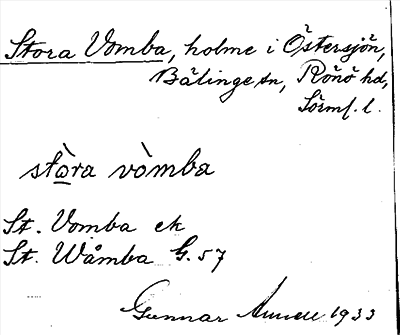 Stora Vomba, holme i Östersjön,
Bälinge sn, Rönö hd,
Sörml. l.
stòra vòmba
St. Vomba ek
St. Wåmba G. 57
Gunnar 1933